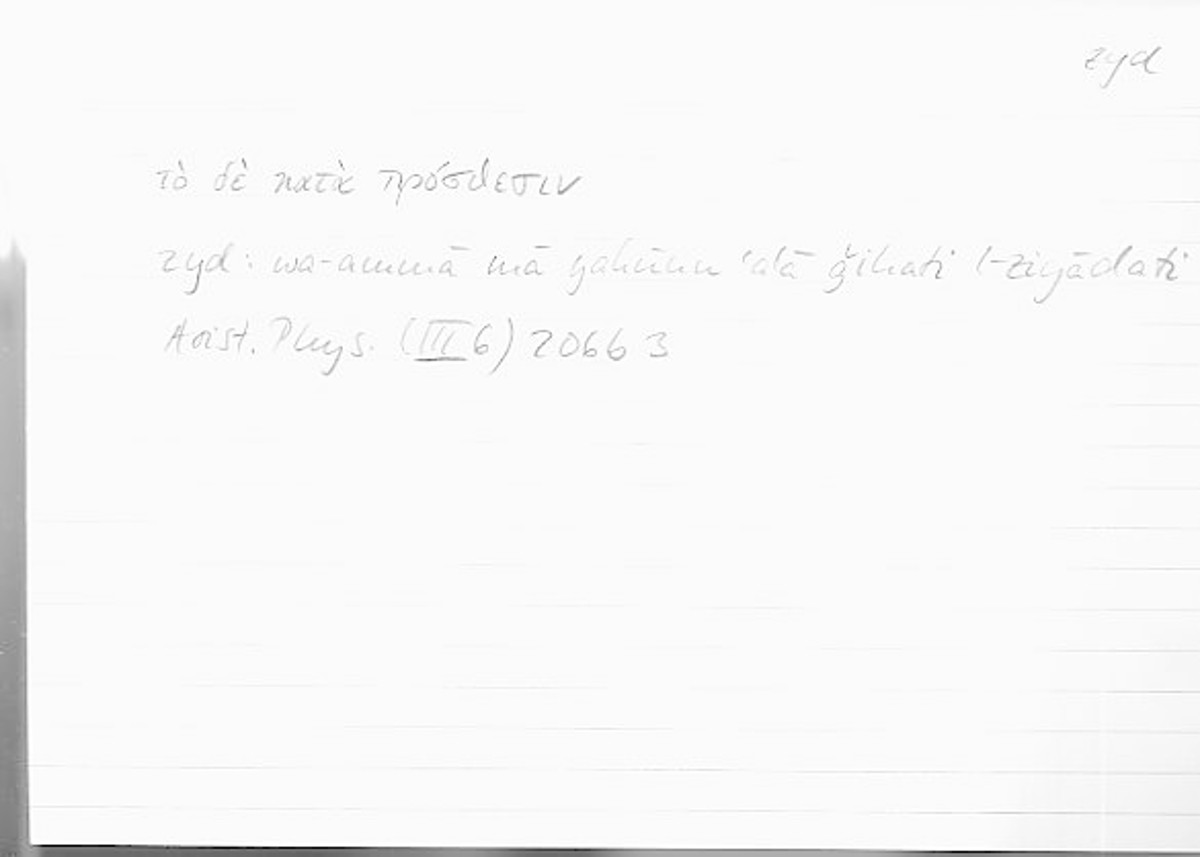 zyd
τὸ δὲ κατὰ πρόσθεσιν
zyd: wa-ammā mā yakūnu ʿalā ǧihati l-ziyādati
Arist. Phys. (III 6) 206b 3